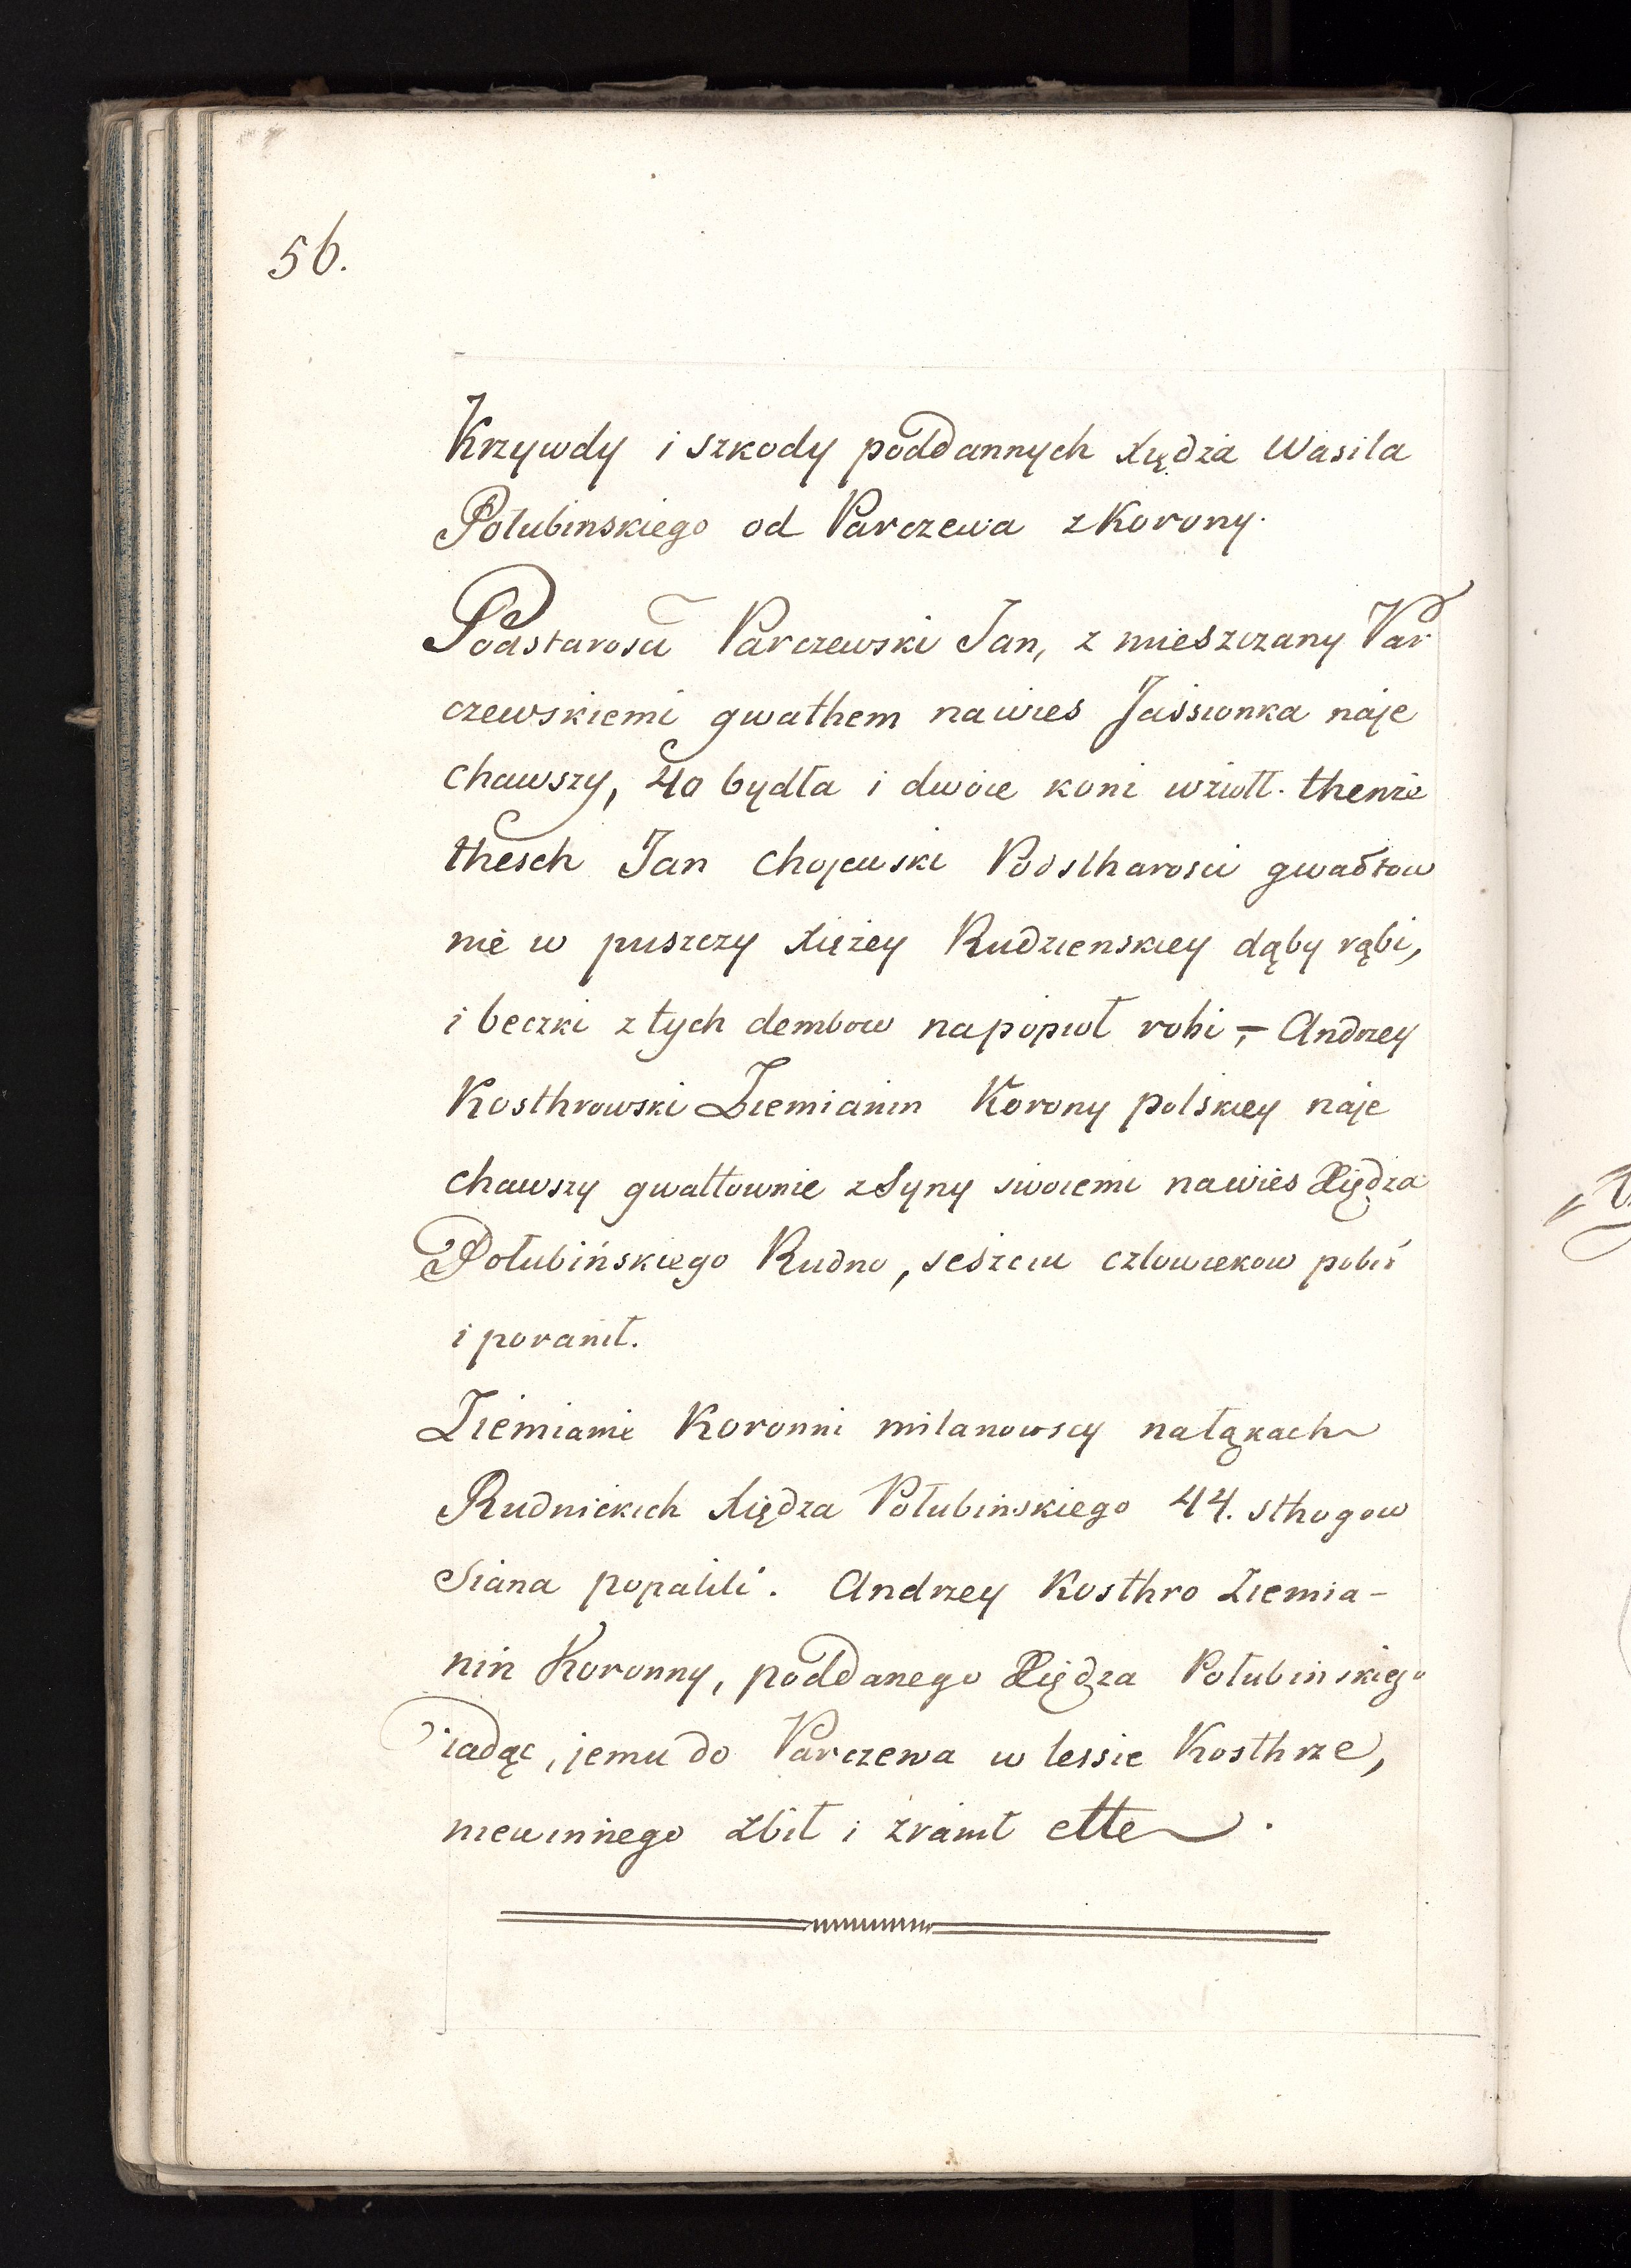 56.
Krzywdy i szkody poddannych Xiędza Wasila
Połubinskiego od Parczewa z Korony.
Podstarosci Parczewski Jan, z mieszczany Par
czewskiemi gwałtem na wies Jassionka naje
chawszy, 40 bydła i dwoie koni wziołł. thenże
thesch Jan Chojewski Podstharosci gwałtow
nie w puszczy Xiężey Rudzienskiey dąby rąbi,
i beczki z tych dembow na popioł robi, – Andrzey
Kosthrowski Ziemianin Korony polskiey naje
chawszy gwałtownie z Syny swoiemi na wies Xiędza
Połubińskiego Rudno, sesciu człowiekow pobił
i poranił.
Ziemianie Koronni milanowscy na łąkach
Rudnickich Xiędza Połubińskiego 44. sthogow
Siana popalili. Andrzey Kosthro Ziemia-
nin Koronny, poddanego Xiędza Połubinskiego
iadąc, jemu do Parczewa w lessie Kosthrze,
niewinnego zbił i zranił ette.